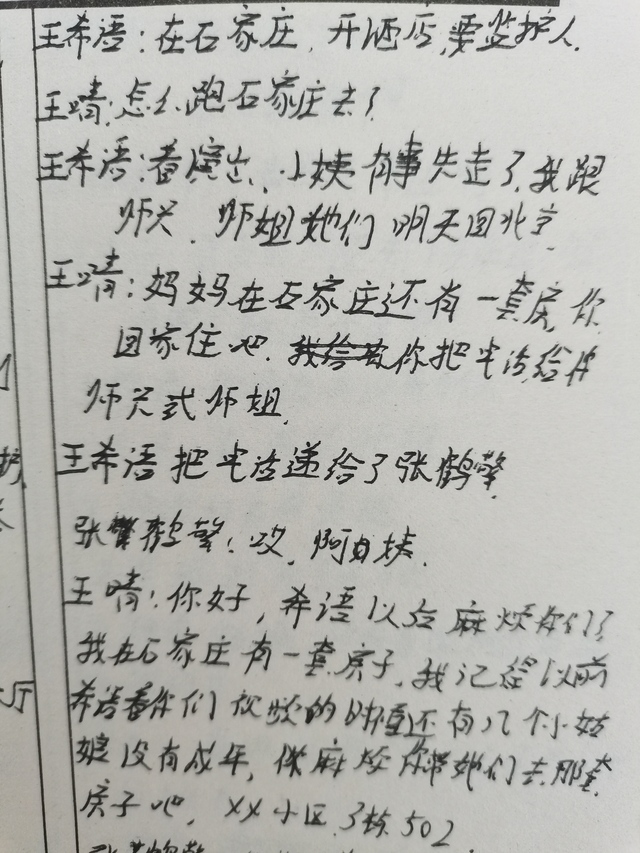 王希语：在石家庄，开酒店，要监护人.
王晴：怎么跑石家庄去了
王希语：看演出、小姨有事先走了，我跟
师兄、师姐她们明天回北京.
王晴：妈妈在石家庄还有一套房，你
回家住吧. 你把电话给你
师兄或师姐.
王希语把电话递给了张鹤馨.
张鹤馨：哎，阿姨.
王晴：你好，希语以后麻烦你们了
我在石家庄有一套房子，我记得以前
希语看你们视频的时候还有几个小姑
娘没有成年，你麻烦你带她们去那套
房子吧，XX小区3栋502